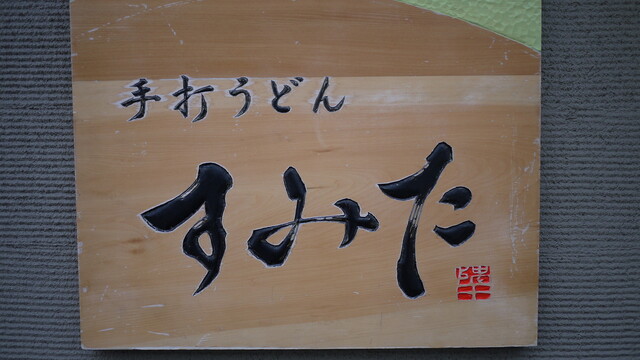 手打うどん
すみた